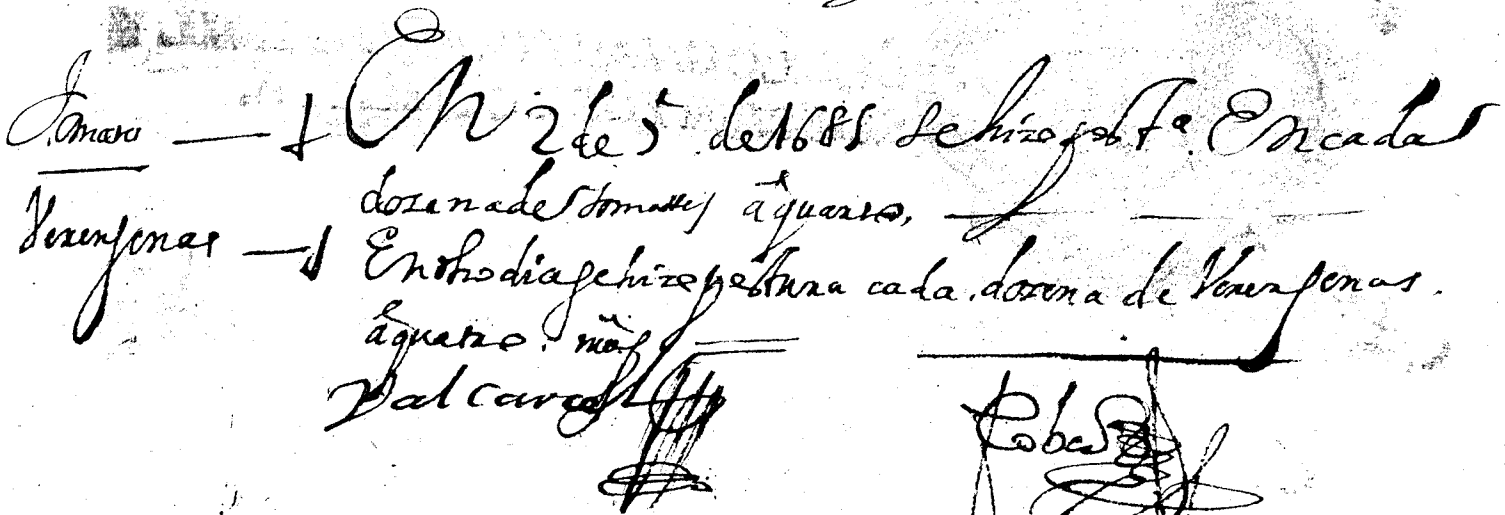 Tomates — En 2 de 7e de 1685 se hizo postª En cada
dozena de tomattes a quatro,
Verenjenas — En otro dia se hizo postura cada dozena de Verenjenas.
a quatro mas
Valcarcel Cobeas